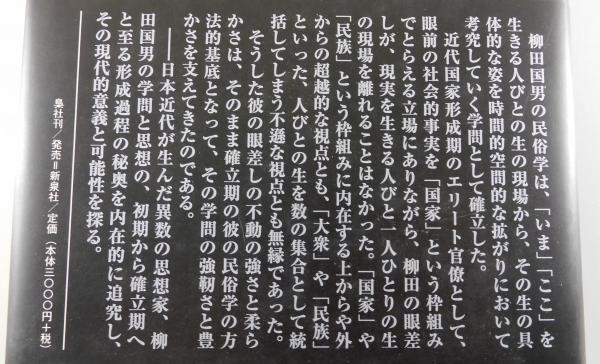 柳田国男の民俗学は、「いま」「ここ」を
生きる人びとの生の現場から、その生の具
体的な姿を時間的空間的な拡がりにおいて
考究していく学問として確立した。
近代国家形成期のエリート官僚として、
眼前の社会的事実を「国家」という枠組み
でとらえる立場にありながら、柳田の眼差
しが、現実を生きる人びと一人ひとりの生
の現場を離れることはなかった。「国家」や
「民族」という枠組みに内在する上からや外
からの超越的な視点とも、「大衆」や「民族」
といった、人びとの生を数の集合として統
括してしまう不遜な視点とも無縁であった。
そうした彼の眼差しの不動の強さと柔ら
かさは、そのまま確立期の彼の民俗学の方
法的基底となって、その学問の強靭さと豊
かさを支えてきたのである。
――日本近代が生んだ異数の思想家、柳
田国男の学問と思想の、初期から確立期へ
と至る形成過程の秘奥を内在的に追究し、
その現代的意義と可能性を探る。
梟社刊／発売=新泉社／定価（本体三〇〇〇円+税）